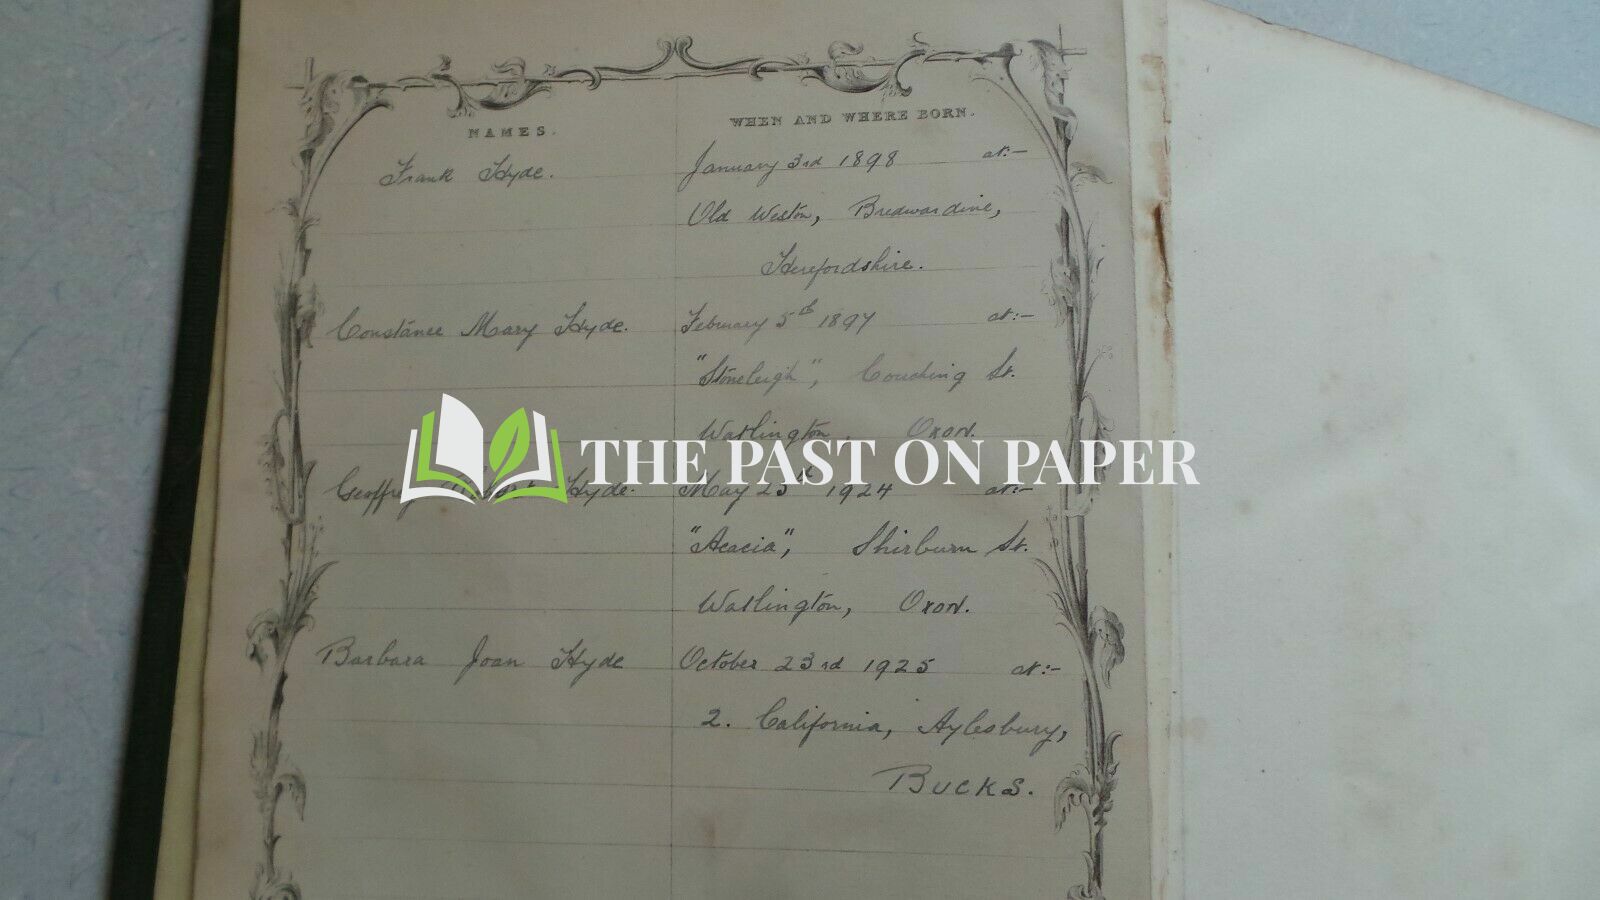 NAMES. WHEN AND WHERE BORN.
Frank Hyde. January 3rd 1898 at:-
Old Weston, Bredwardine,
Herefordshire.
Constance Mary Hyde. February 5th 1897 at:-
"Stoneleigh", Couching St.
Watlington, Oxon.
THE PAST ON PAPER
Geoffrey Hyde. May 25th 1924 at:-
"Acacia", Shirburn St.
Watlington, Oxon.
Barbara Joan Hyde October 23rd 1925 at:-
2. California, Aylesbury,
BUCKS.